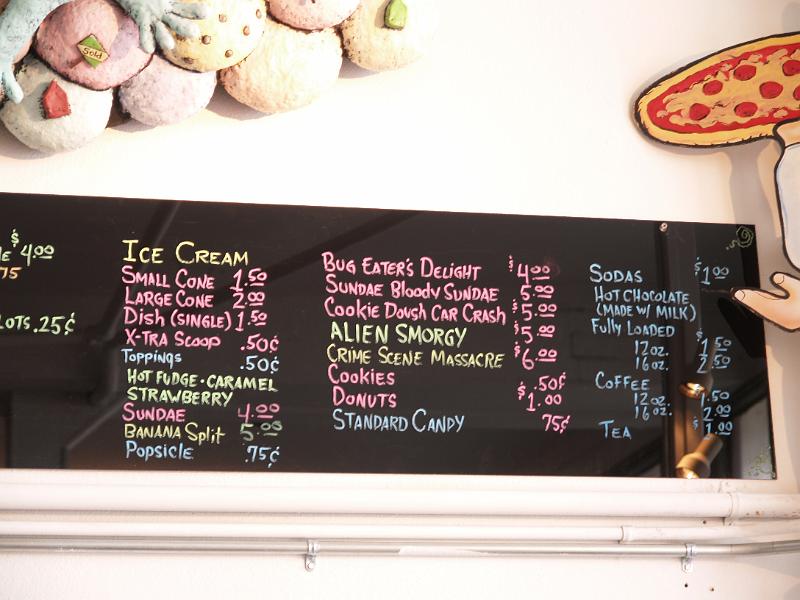 Sold
$4.00
75
LOTS .25¢
ICE CREAM
SMALL CONE 1.50
LARGE CONE 2.00
Dish (SINGLE) 1.50
X-TRA SCOOP .50¢
TOPPINGS .50¢
HOT FUDGE · CARAMEL
STRAWBERRY
SUNDAE 4.00
BANANA Split 5.00
Popsicle .75¢
BUG EATER'S DELIGHT $4.00
SUNDAE BLOODY SUNDAE 5.00
COOKIE DOUGH CAR CRASH $5.00
ALIEN SMORGY $5.00
CRIME SCENE MASSACRE $6.00
COOKIES .50¢
DONUTS $1.00
STANDARD CANDY 75¢
SODAS $1.00
HOT CHOCOLATE
(MADE W/ MILK)
Fully LOADED
12oz. $1.50
16oz. 2.50
COFFEE
12oz. 1.50
16oz. 2.00
TEA $1.00